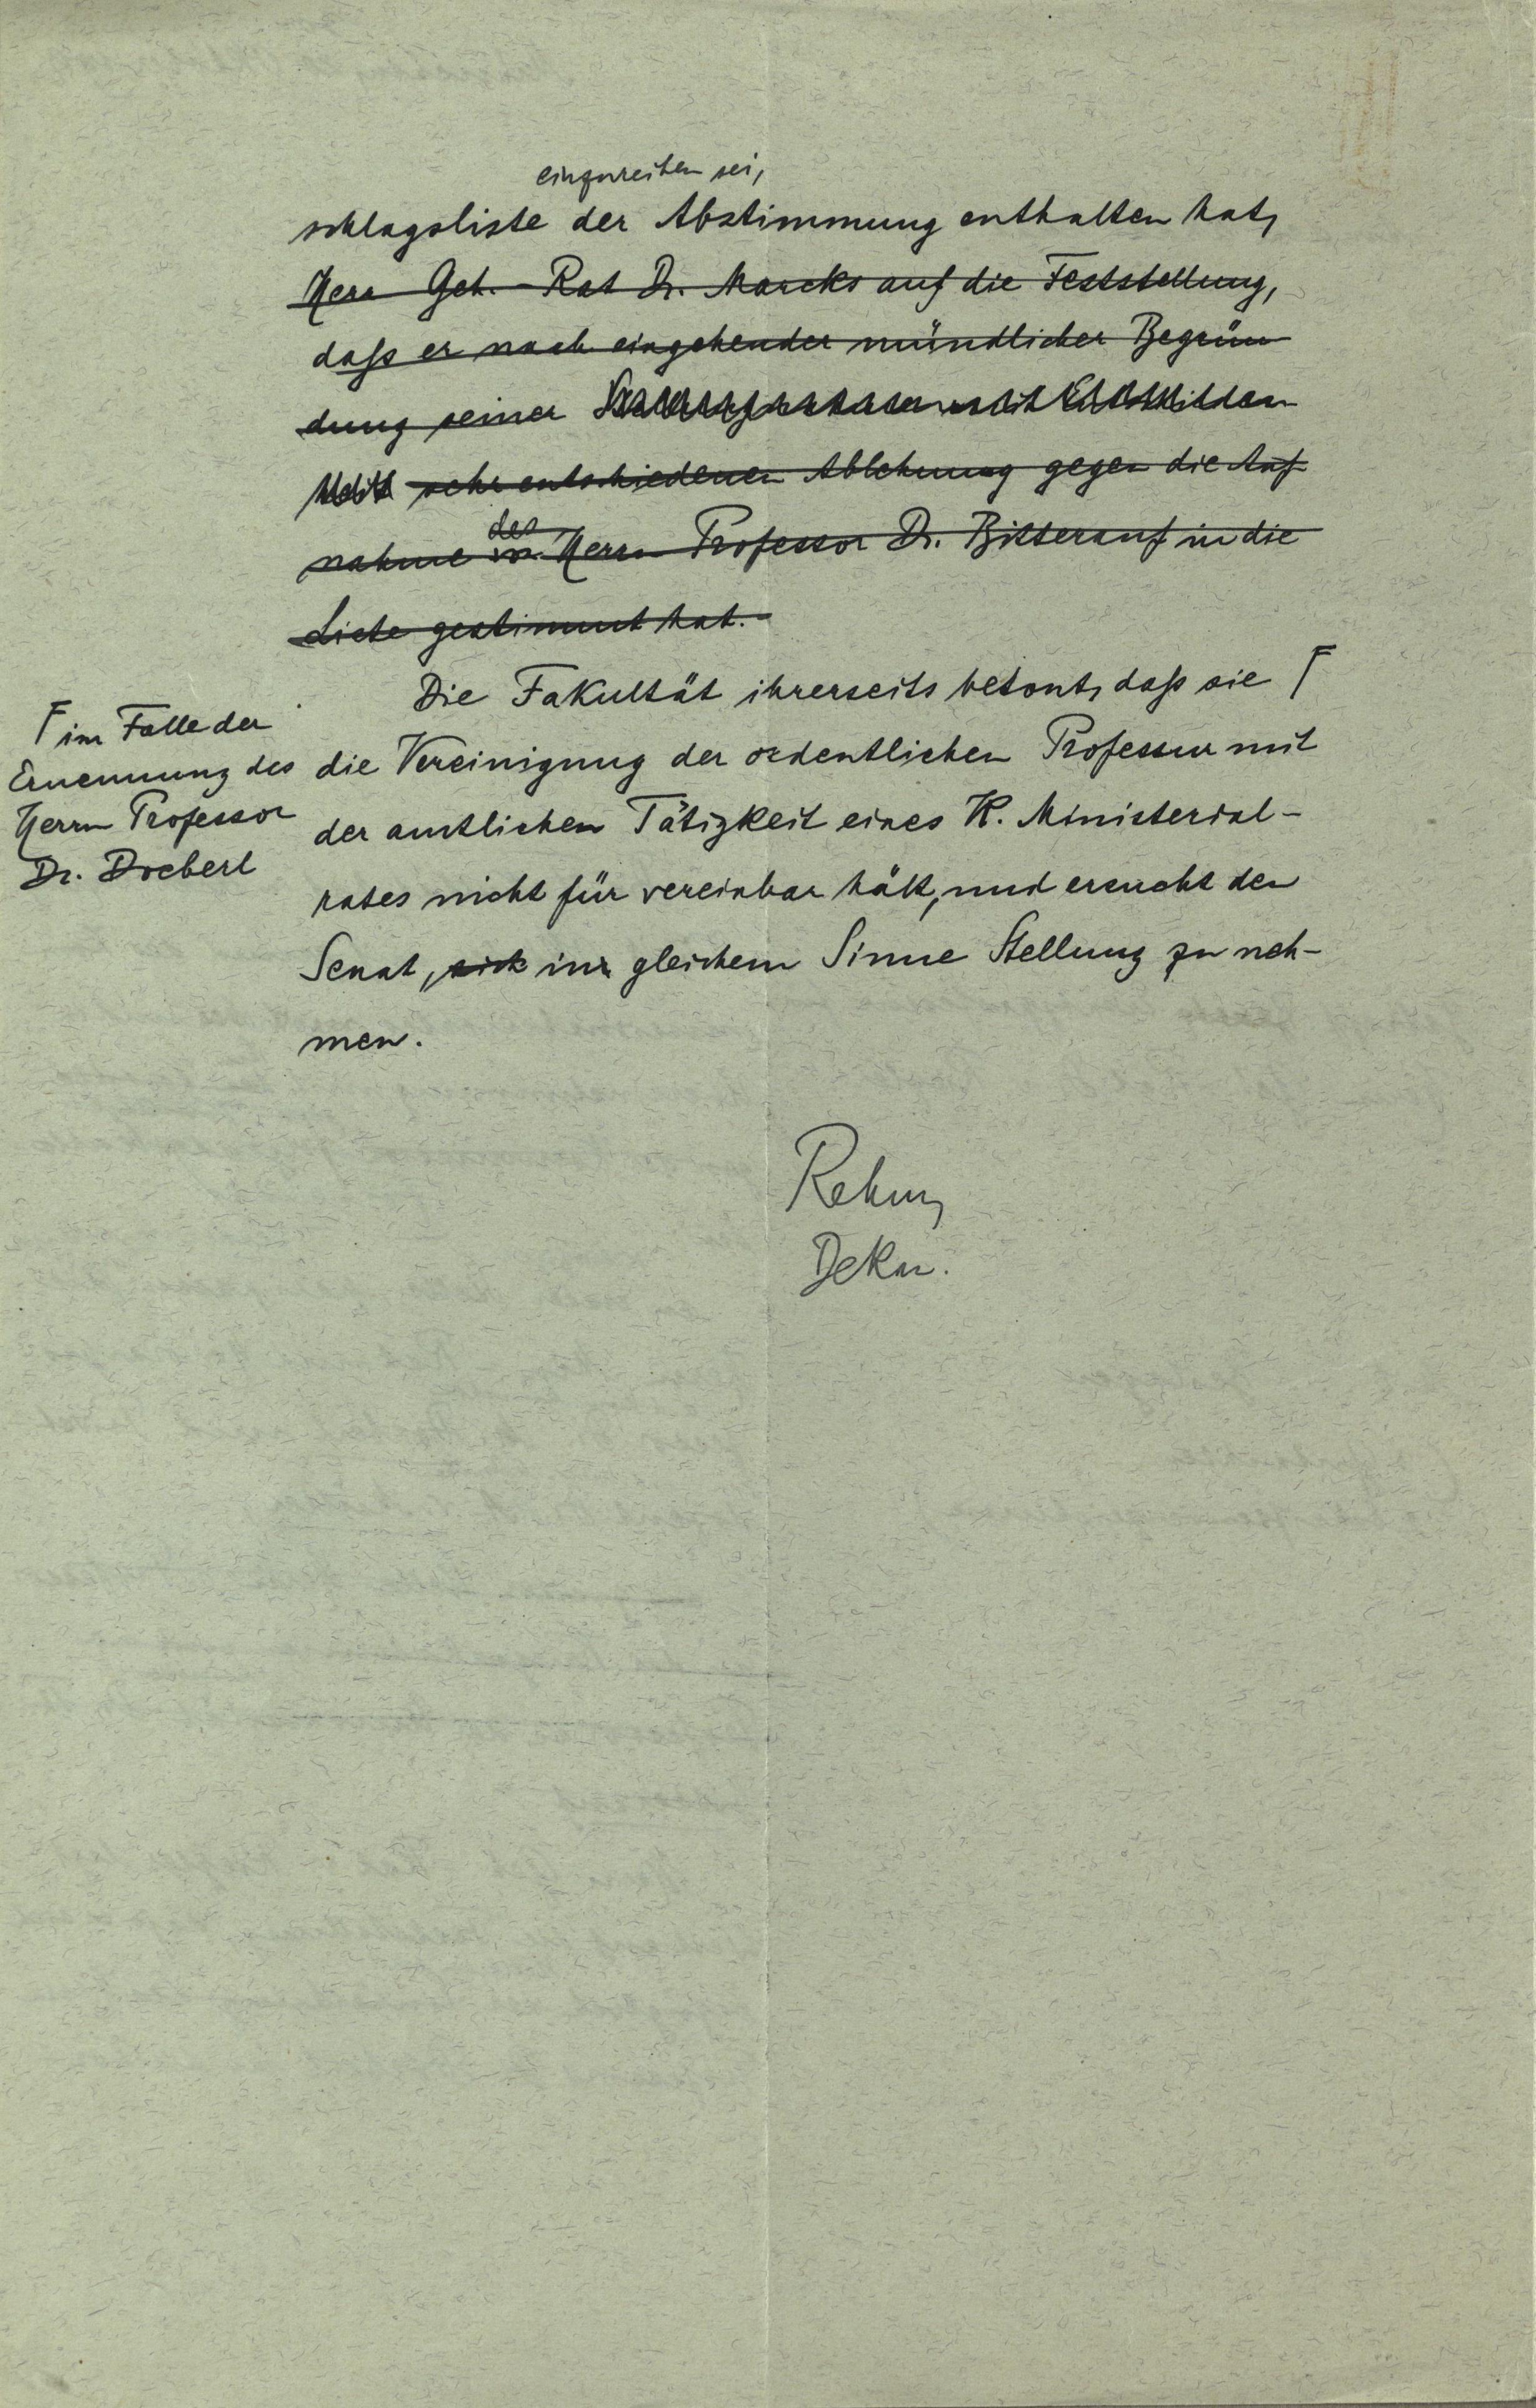 einzureihen sei,
schlagsliste der Abstimmung enthalten hat,
Herr Geh. Rat Dr. Marcks auf die Feststellung,
daß er nach eingehender mündlicher Begrün
dung seiner
sehr entschiedenen Ablehnung gegen die Auf
nahme des Herrn Professor Dr. Bitterauf in die
Liste gestimmt hat.
Die Fakultät ihrerseits betont, daß sie Γ
Γ im Falle der
Ernennung des
Herrn Professor
Dr. Doeberl
die Vereinigung der ordentlichen Professur mit
der amtlichen Tätigkeit eines K. Ministerial-
rates nicht für vereinbar hält, und ersucht den
Senat, sich in gleichem Sinne Stellung zu neh-
men.
Rehm,
Dekan.